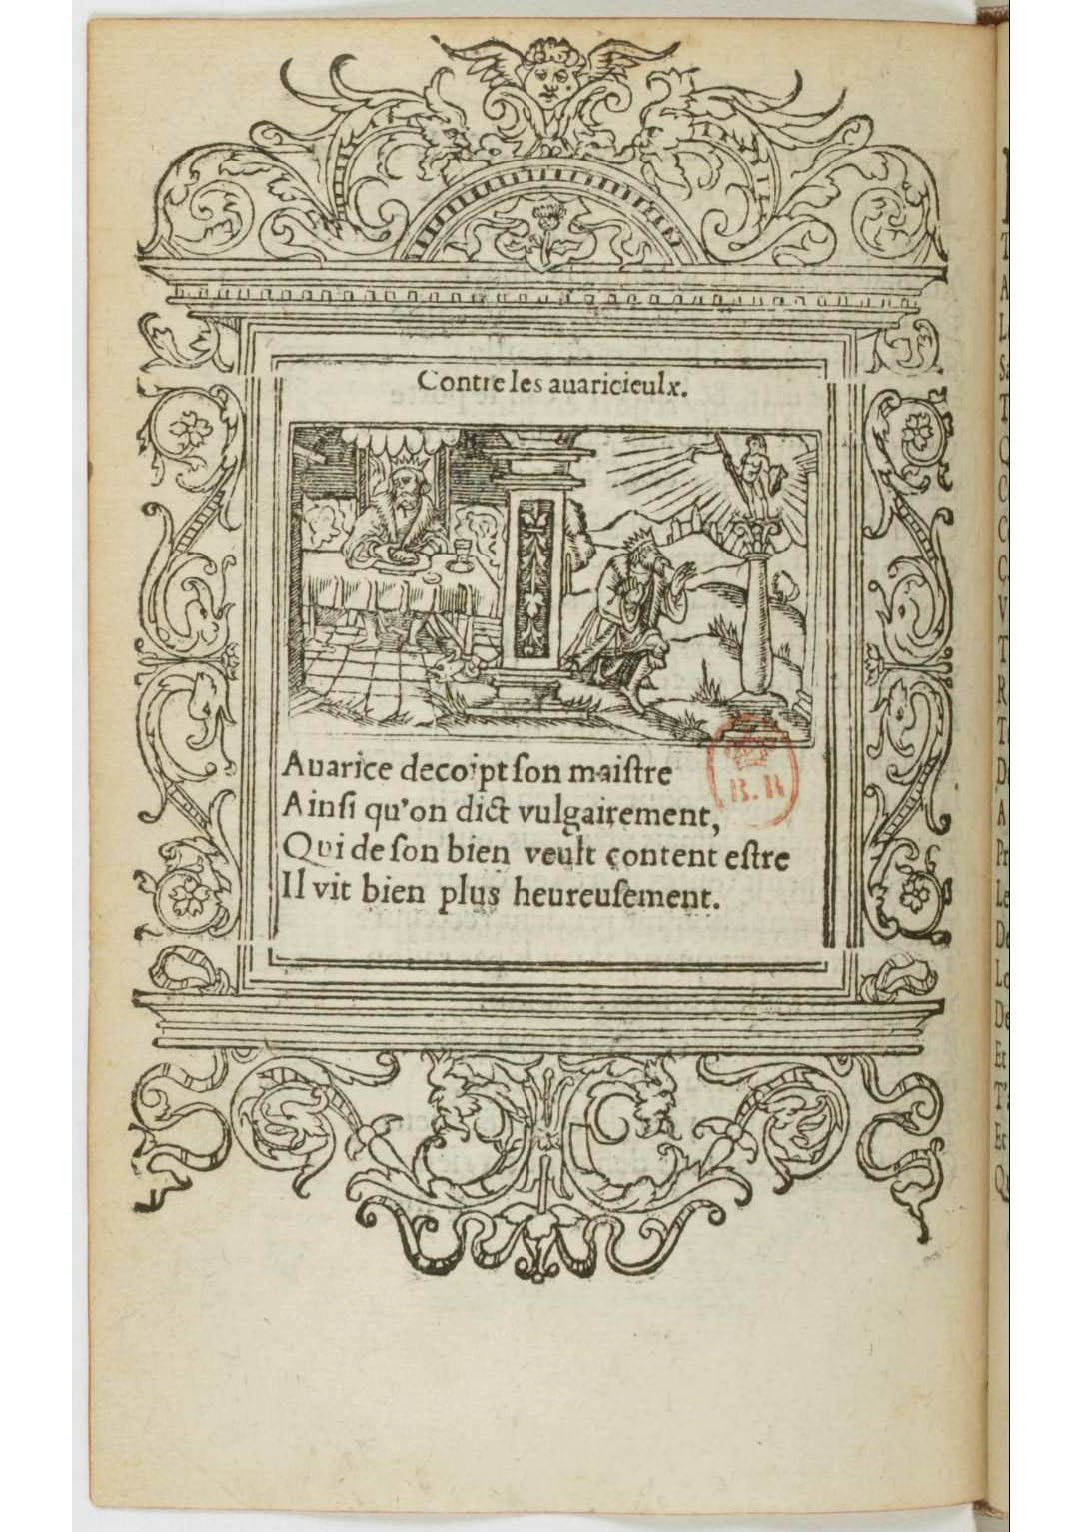 Contre les auaricieulx.
Auarice decoipt ſon maiſtre
Ainſi qu'on dict vulgairement,
Qui de ſon bien veult content eſtre
Il vit bien plus heureuſement.
B. R
T
A
L
T
V
T
R
T
D
A
Pr
Le
De
Lo
De
Et
Et